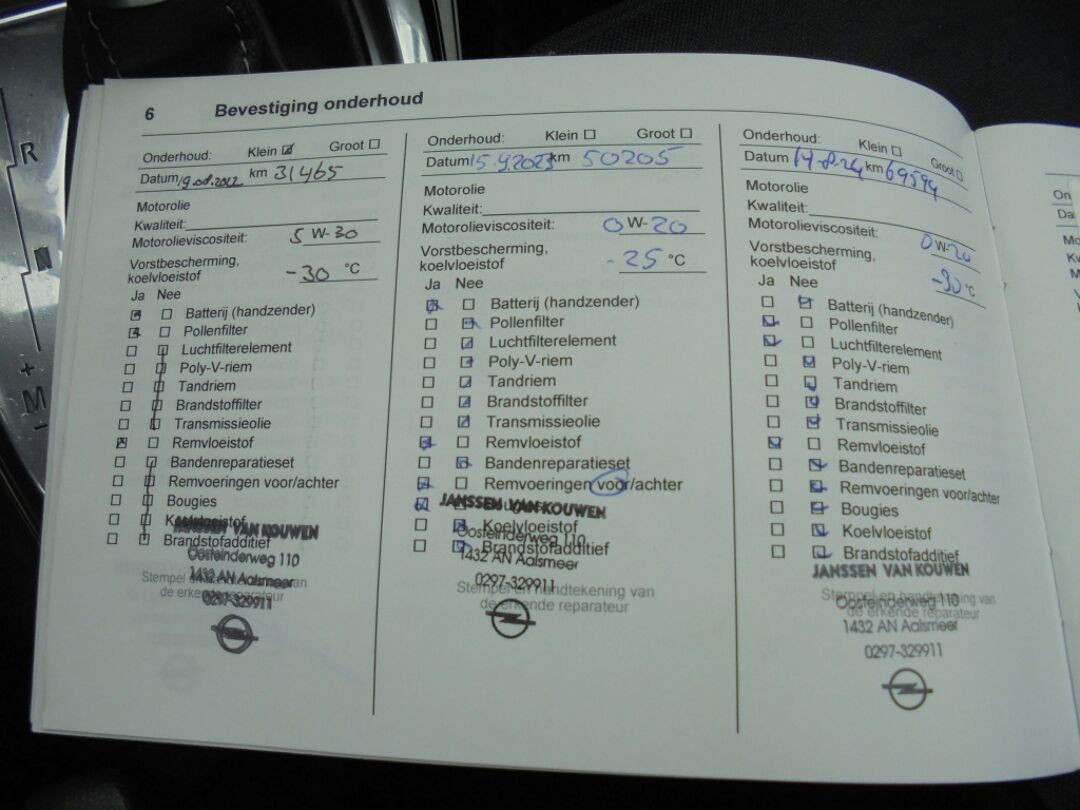 6 Bevestiging onderhoud
Onderhoud: Klein ☑ Groot ☐
Datum 19.08.2022 km 31465
Motorolie
Kwaliteit:
Motorolieviscositeit: 5 W-30
Vorstbescherming,
koelvloeistof -30 °C
Ja Nee
Batterij (handzender)
Pollenfilter
Luchtfilterelement
Poly-V-riem
Tandriem
Brandstoffilter
Transmissieolie
Remvloeistof
Bandenreparatieset
Remvoeringen voor/achter
Bougies
Koelvloeistof
Brandstofadditief
JANSSEN VAN KOUWEN
Oosteinderweg 110
1432 AN Aalsmeer
0297-329911
Stempel en van
de erkende reparateur
Onderhoud: Klein ☐ Groot ☐
Datum 15.9.2023 km 50205
Motorolie
Kwaliteit:
Motorolieviscositeit: 0 W-20
Vorstbescherming,
koelvloeistof -25 °C
Ja Nee
Batterij (handzender)
Pollenfilter
Luchtfilterelement
Poly-V-riem
Tandriem
Brandstoffilter
Transmissieolie
Remvloeistof
Bandenreparatieset
Remvoeringen voor/achter
Bougies
Koelvloeistof
Brandstofadditief
JANSSEN VAN KOUWEN
Oosteinderweg 110
1432 AN Aalsmeer
0297-329911
Stempel en handtekening van
de erkende reparateur
Onderhoud: Klein ☐ Groot ☐
Datum 14-8-24 km 69594
Motorolie
Kwaliteit:
Motorolieviscositeit: 0 W-20
Vorstbescherming,
koelvloeistof -30 °C
Ja Nee
Batterij (handzender)
Pollenfilter
Luchtfilterelement
Poly-V-riem
Tandriem
Brandstoffilter
Transmissieolie
Remvloeistof
Bandenreparatieset
Remvoeringen voor/achter
Bougies
Koelvloeistof
Brandstofadditief
JANSSEN VAN KOUWEN
Stempel en handtekening van
de erkende reparateur
Oosteinderweg 110
1432 AN Aalsmeer
0297-329911
On
Da
Mo
Kw
M
R
N
+
M
-